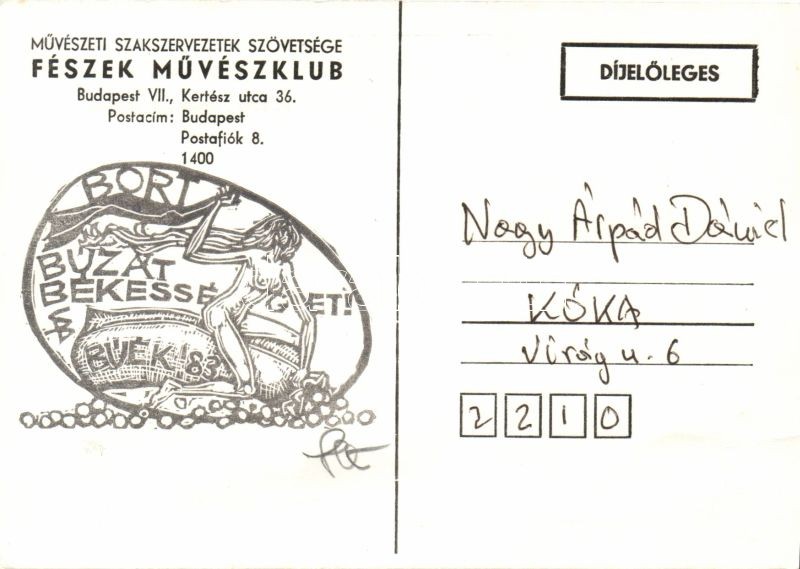 MŰVÉSZETI SZAKSZERVEZETEK SZÖVETSÉGE
FÉSZEK MŰVÉSZKLUB
Budapest VII., Kertész utca 36.
Postacím: Budapest
Postafiók 8.
1400
BORT
BÚZÁT
BÉKESSÉGET!
BUÉK! 83
DÍJELŐLEGES
Nagy Árpád Dániel
KÓKA
Virág u. 6
2210